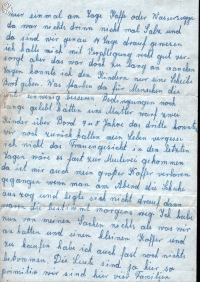 Nur einmal am Tage Kaffe oder Wassersuppe
da war nichts drinn nicht mal Salz und
da sind wir genau 14 Tage drauf gewesen
ich hatte mich mit Verpflegung nicht gut ver-
sorgt aber das war doch zu lang an manchen
Tagen konnte ich den Kindern nur eine Scheibe
Brot geben. Was starben da für Menschen die
unter unseren Bedingungen noch
lange gelebt hätten eine Mutter warf zwei
Kinder über Bord 5 u 7 Jahre das dritte konnte
wir noch zurück halten mein Leben vergesse
ich nicht das Frauengesicht in den letzten
Tagen wäre es fast zur Meuterei gekommen
da ist mir auch mein großer Koffer verloren
gegangen wenn man am Abend die Schuhe
auszog und legte sich nicht drauf dann
waren die bestimmt morgens weg. Ich habe
nun von meinen Sachen nichts als was wir
an hatten und einen kleinen Koffer und
zu kaufen habe ich auch fast noch nichts
bekommen. Die Leute sind ja hier so
primitiv wir sind hier viel Familien